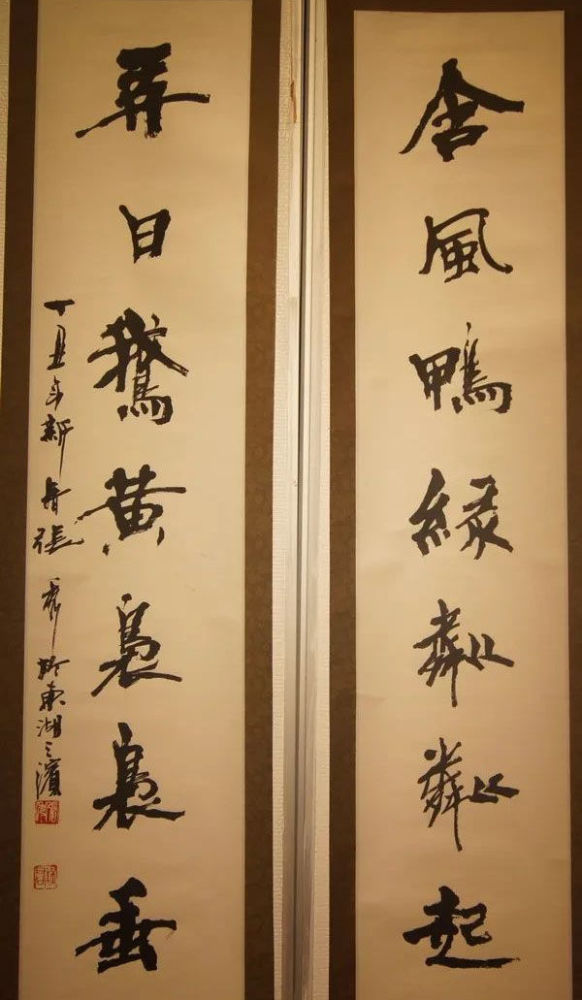 含風鴨緑粼粼起
弄日鵝黄裊裊垂
丁丑年新春張 於東湖之濱